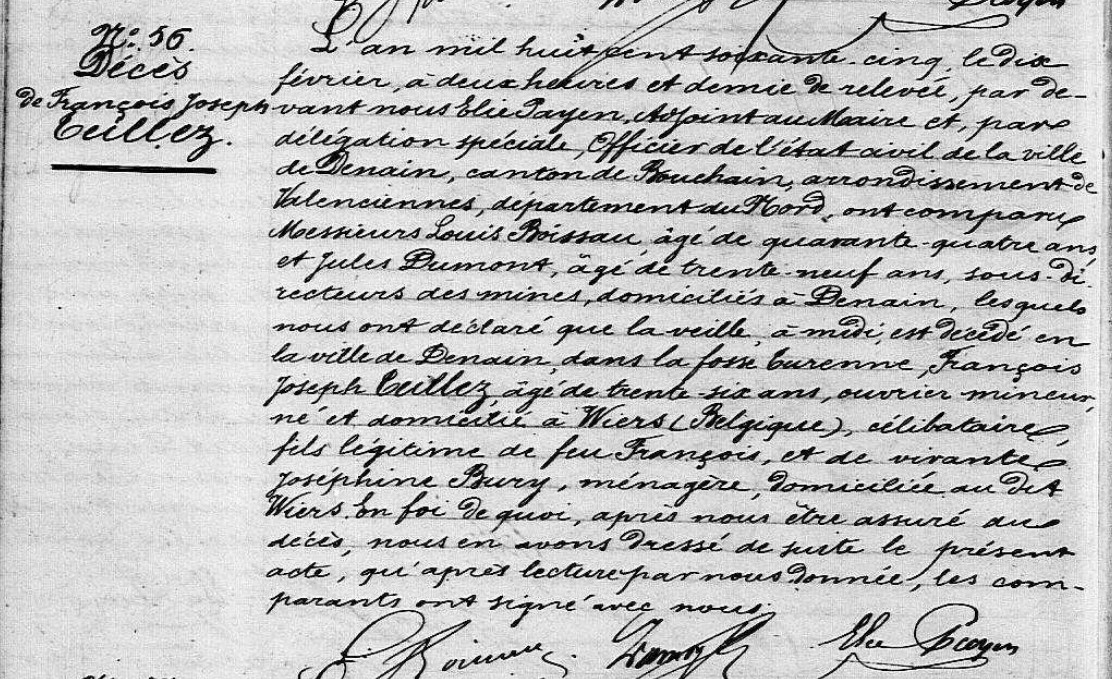 Payen
N.º 56.
Décès
de François Joseph
Teillez.
L'an mil huit cent soixante-cinq, le dix
février, à deux heures et demie de relevée, par de-
vant nous Elie Payen, Adjoint au Maire et, par
délégation spéciale, Officier de l'état civil de la ville
de Denain, canton de Bouchain, arrondissement de
Valenciennes, département du Nord, ont comparu
Messieurs Louis Boissau, âgé de quarante-quatre ans,
et Jules Dumont, âgé de trente-neuf ans, sous-di-
recteurs des mines, domiciliés à Denain, lesquels
nous ont déclaré que la veille, à midi, est décédé en
la ville de Denain, dans la fosse Turenne, François
Joseph Teillez, âgé de trente-six ans, ouvrier mineur,
né et domicilié à Wiers (Belgique), célibataire,
fils légitime de feu François, et de vivante
Joséphine Bury, ménagère, domiciliée au dit
Wiers. En foi de quoi, après nous être assuré du
décès, nous en avons dressé de suite le présent
acte, qu'après lecture par nous donnée, les com-
parants ont signé avec nous.
Elie Payen